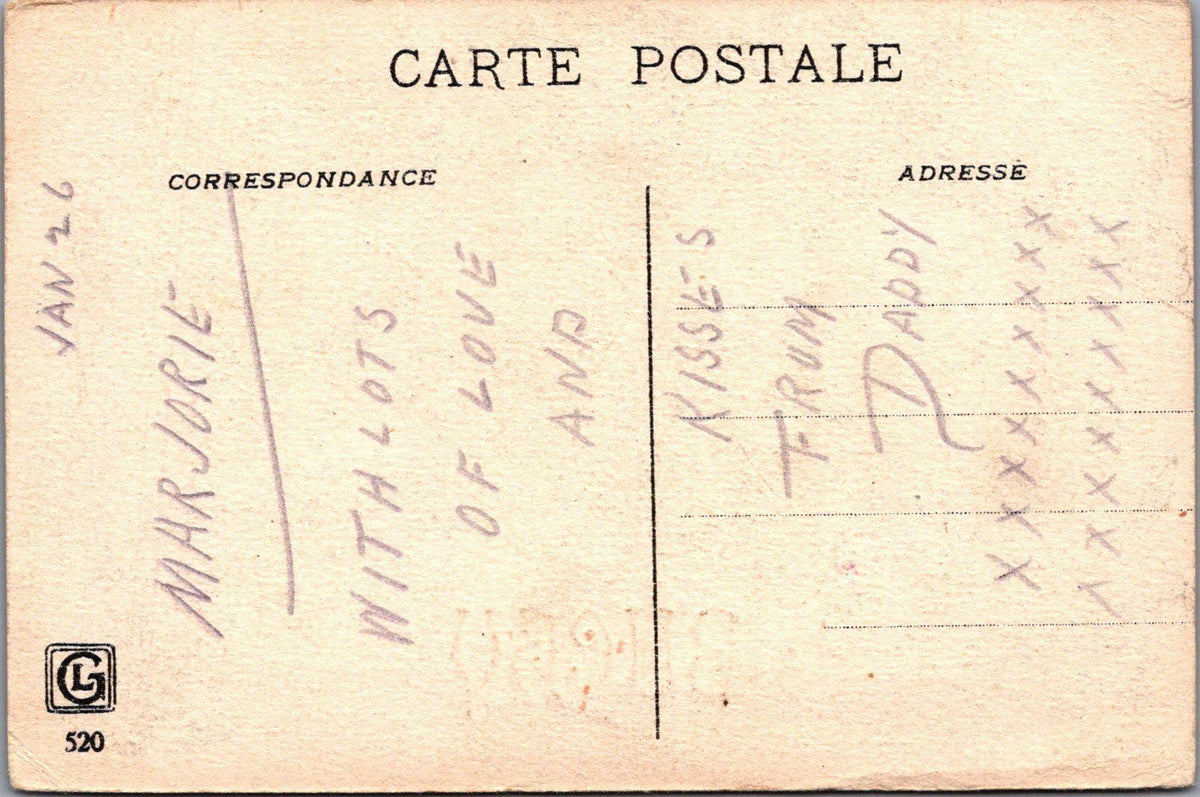 CARTE POSTALE
CORRESPONDANCE
ADRESSE
JAN 26
MARJORIE
WITH LOTS
OF LOVE
AND
KISSES
FROM
DADDY
X X X X X X X X X
X X X X X X X X X
GL
520